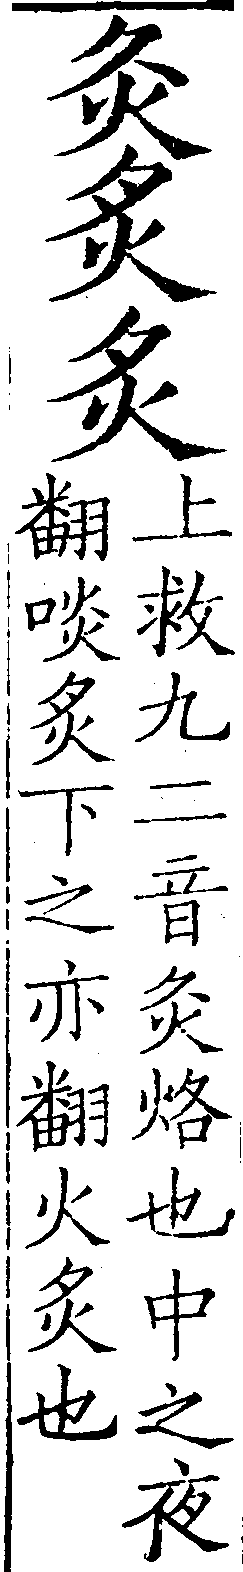 灸炙炙
上救九二音灸烙也中之夜
翻啖炙下之亦翻火炙也